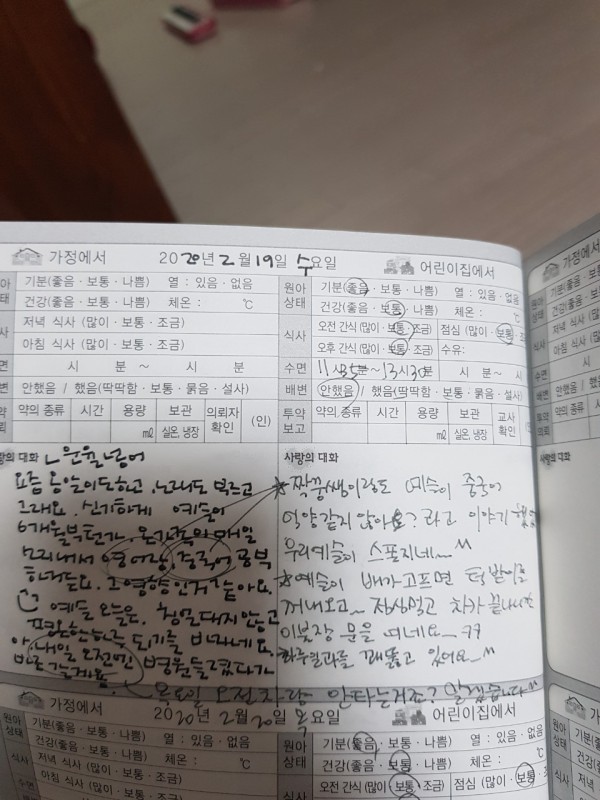 가정에서
2020년 2월 19일 수요일
어린이집에서
기분(좋음 · 보통 · 나쁨) 열 : 있음 · 없음
건강(좋음 · 보통 · 나쁨) 체온 : ℃
저녁 식사 (많이 · 보통 · 조금)
아침 식사 (많이 · 보통 · 조금)
시 분 ~ 시 분
안했음 / 했음(딱딱함 · 보통 · 묽음 · 설사)
약의 종류 시간 용량 보관 의뢰자 확인 (인)
㎖ 실온, 냉장
원아 상태
기분(좋음 · 보통 · 나쁨) 열 : 있음 · 없음
건강(좋음 · 보통 · 나쁨) 체온 : ℃
식사
오전 간식 (많이 · 보통 · 조금) 점심 (많이 · 보통
오후 간식 (많이 · 보통 · 조금) 수유:
수면 11시35분~13시30분 시 분~ 시
배변 안했음 / 했음(딱딱함 · 보통 · 묽음 · 설사)
투약 보고 약의 종류 시간 용량 보관 교사 확인 (인)
㎖ 실온, 냉장
사랑의 대화
요즘 옹알이도하고, 노래도 부르고
그래요. 신기하게 예슬이
6개월부턴가, 온가족이 매일
모여서 영어랑, 중국어 공부
하거든요. 그 영향인거 같아요.
예슬 오늘은 칭얼대지 않고
평온한하루 되기를 바라네요.
아, 내일 오전엔 병원들렸다가
바로 갈게용.
사랑의 대화
짝꿍쌤이랑도 예슬이 중국어
억양같지 않아요? 라고 이야기
우리예슬이 스폰지네~
예슬이 배가고프면 턱받이를
꺼내오고~ 자상먹고 차가 끝나시면
이불장 문을 여네요~ ㅋㅋ
하루일과를 꿰뚫고 있어요~
오전차량 안타는거죠? 알겠습니다
가정에서
2020년 2월 20일 목요일
어린이집에서
원아 상태
기분(좋음 · 보통 · 나쁨) 열 : 있음 · 없음
건강(좋음 · 보통 · 나쁨) 체온 : ℃
식사
저녁 식사 (많이 · 보통 · 조금)
아침 식사 (많이 · 보통 · 조금)
원아 상태
기분(좋음 · 보통 · 나쁨) 열 : 있음 · 없음
건강(좋음 · 보통 · 나쁨) 체온 : ℃
오전 간식 (많이 · 보통 · 조금) 점심 (많이 · 보통
가정에서
원아 상태
기분(좋음
건강(좋음
식사
저녁 식사 (많
아침 식사 (많
수면 시
배변 안했음 / 했
투약 의뢰 약의 종류 시
사랑의 대화
가정에서
원아 상태
기분(좋음
건강(좋음